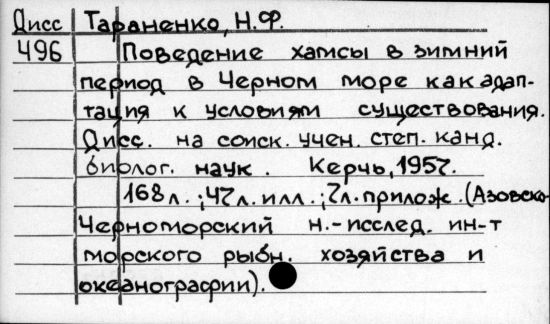 Дисс Тараненко, Н.Ф.
496 Поведение хамсы в зимний
период в Черном море как адап-
тация к условиям существования.
Дисс. на соиск. учен. степ. канд.
биолог. наук. Керчь, 1957.
168 л.; 47 л. илл.; 7 л. прилож. (Азовско-
Черноморский н.-исслед. ин-т
морского рыбн. хозяйства и
океанографии).